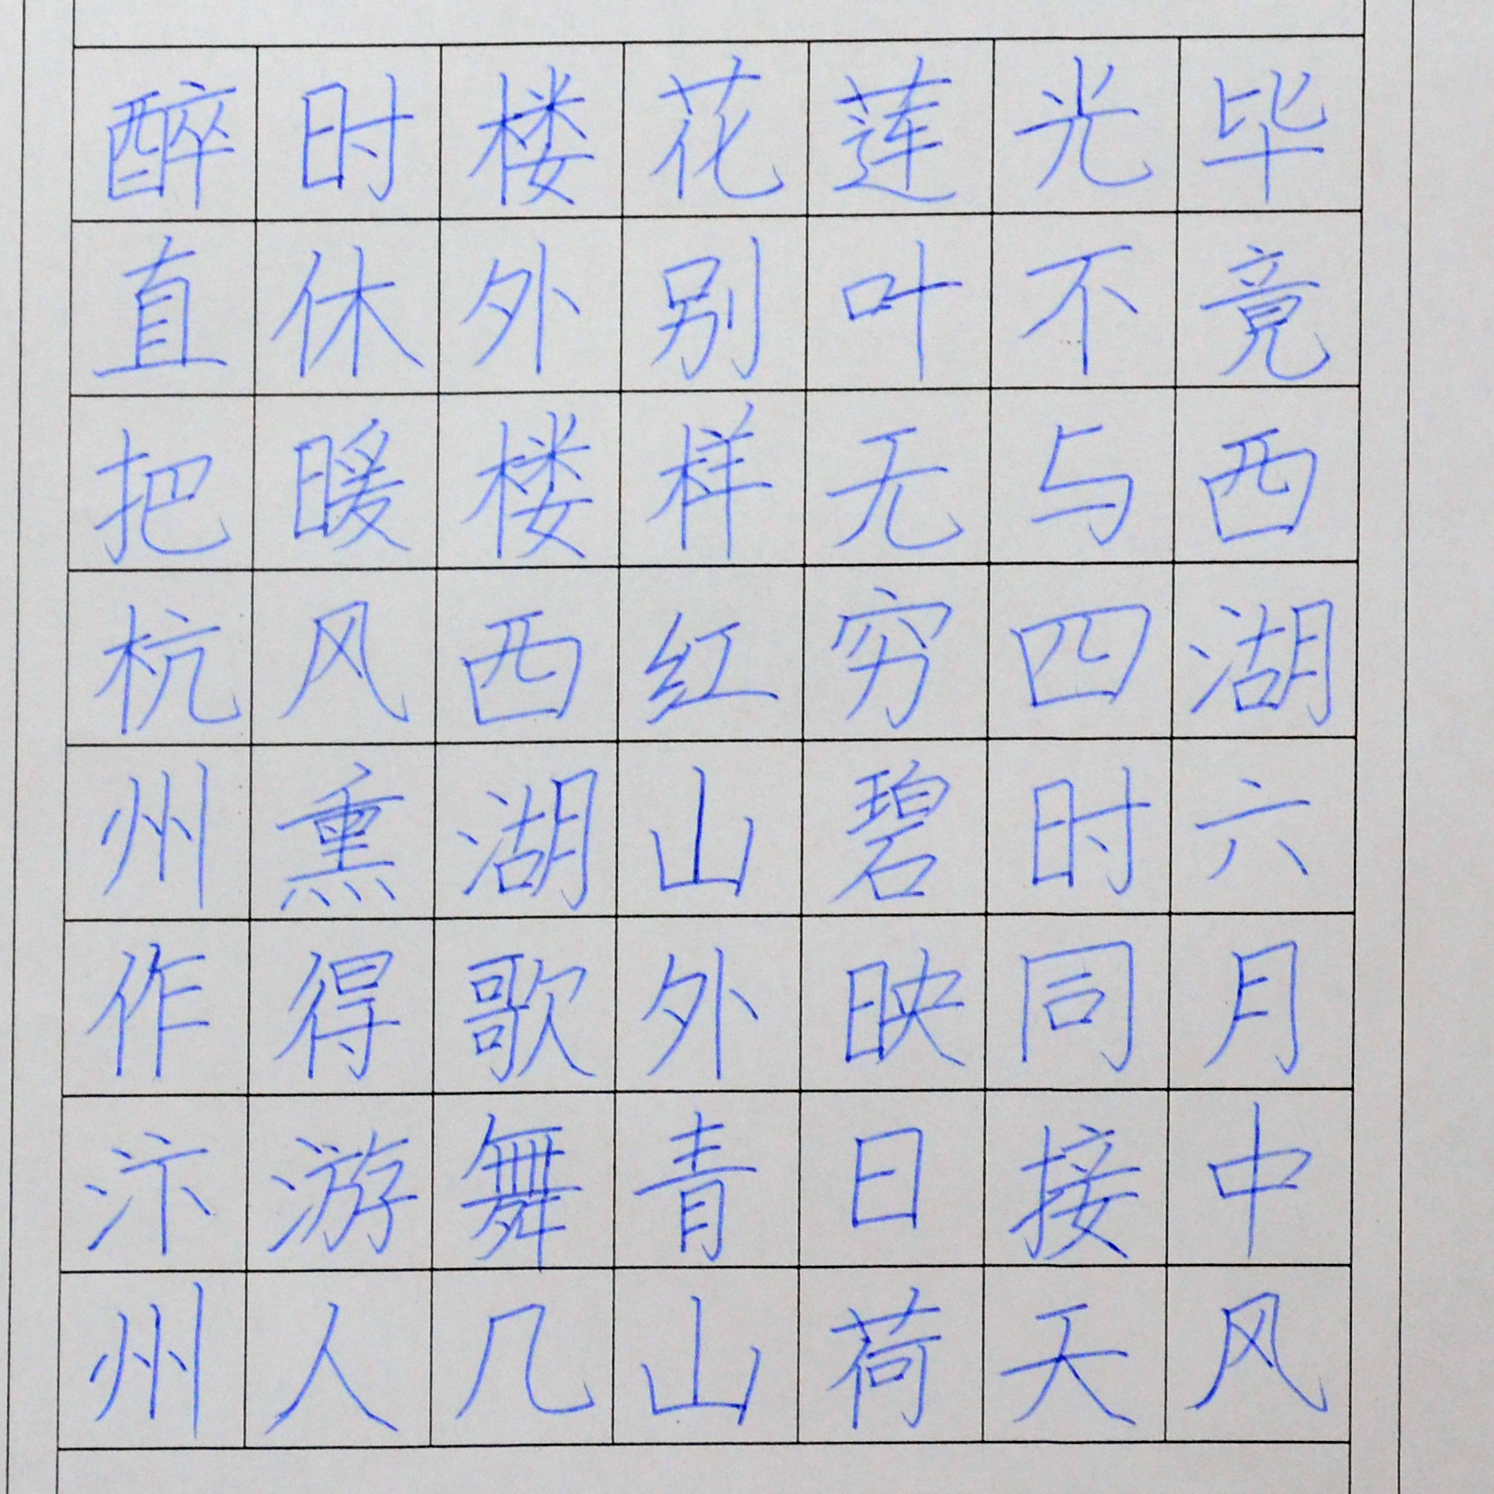 毕竟西湖六月中风
光不与四时同接天
莲叶无穷碧映日荷
花别样红山外青山
楼外楼西湖歌舞几
时休暖风熏得游人
醉直把杭州作汴州